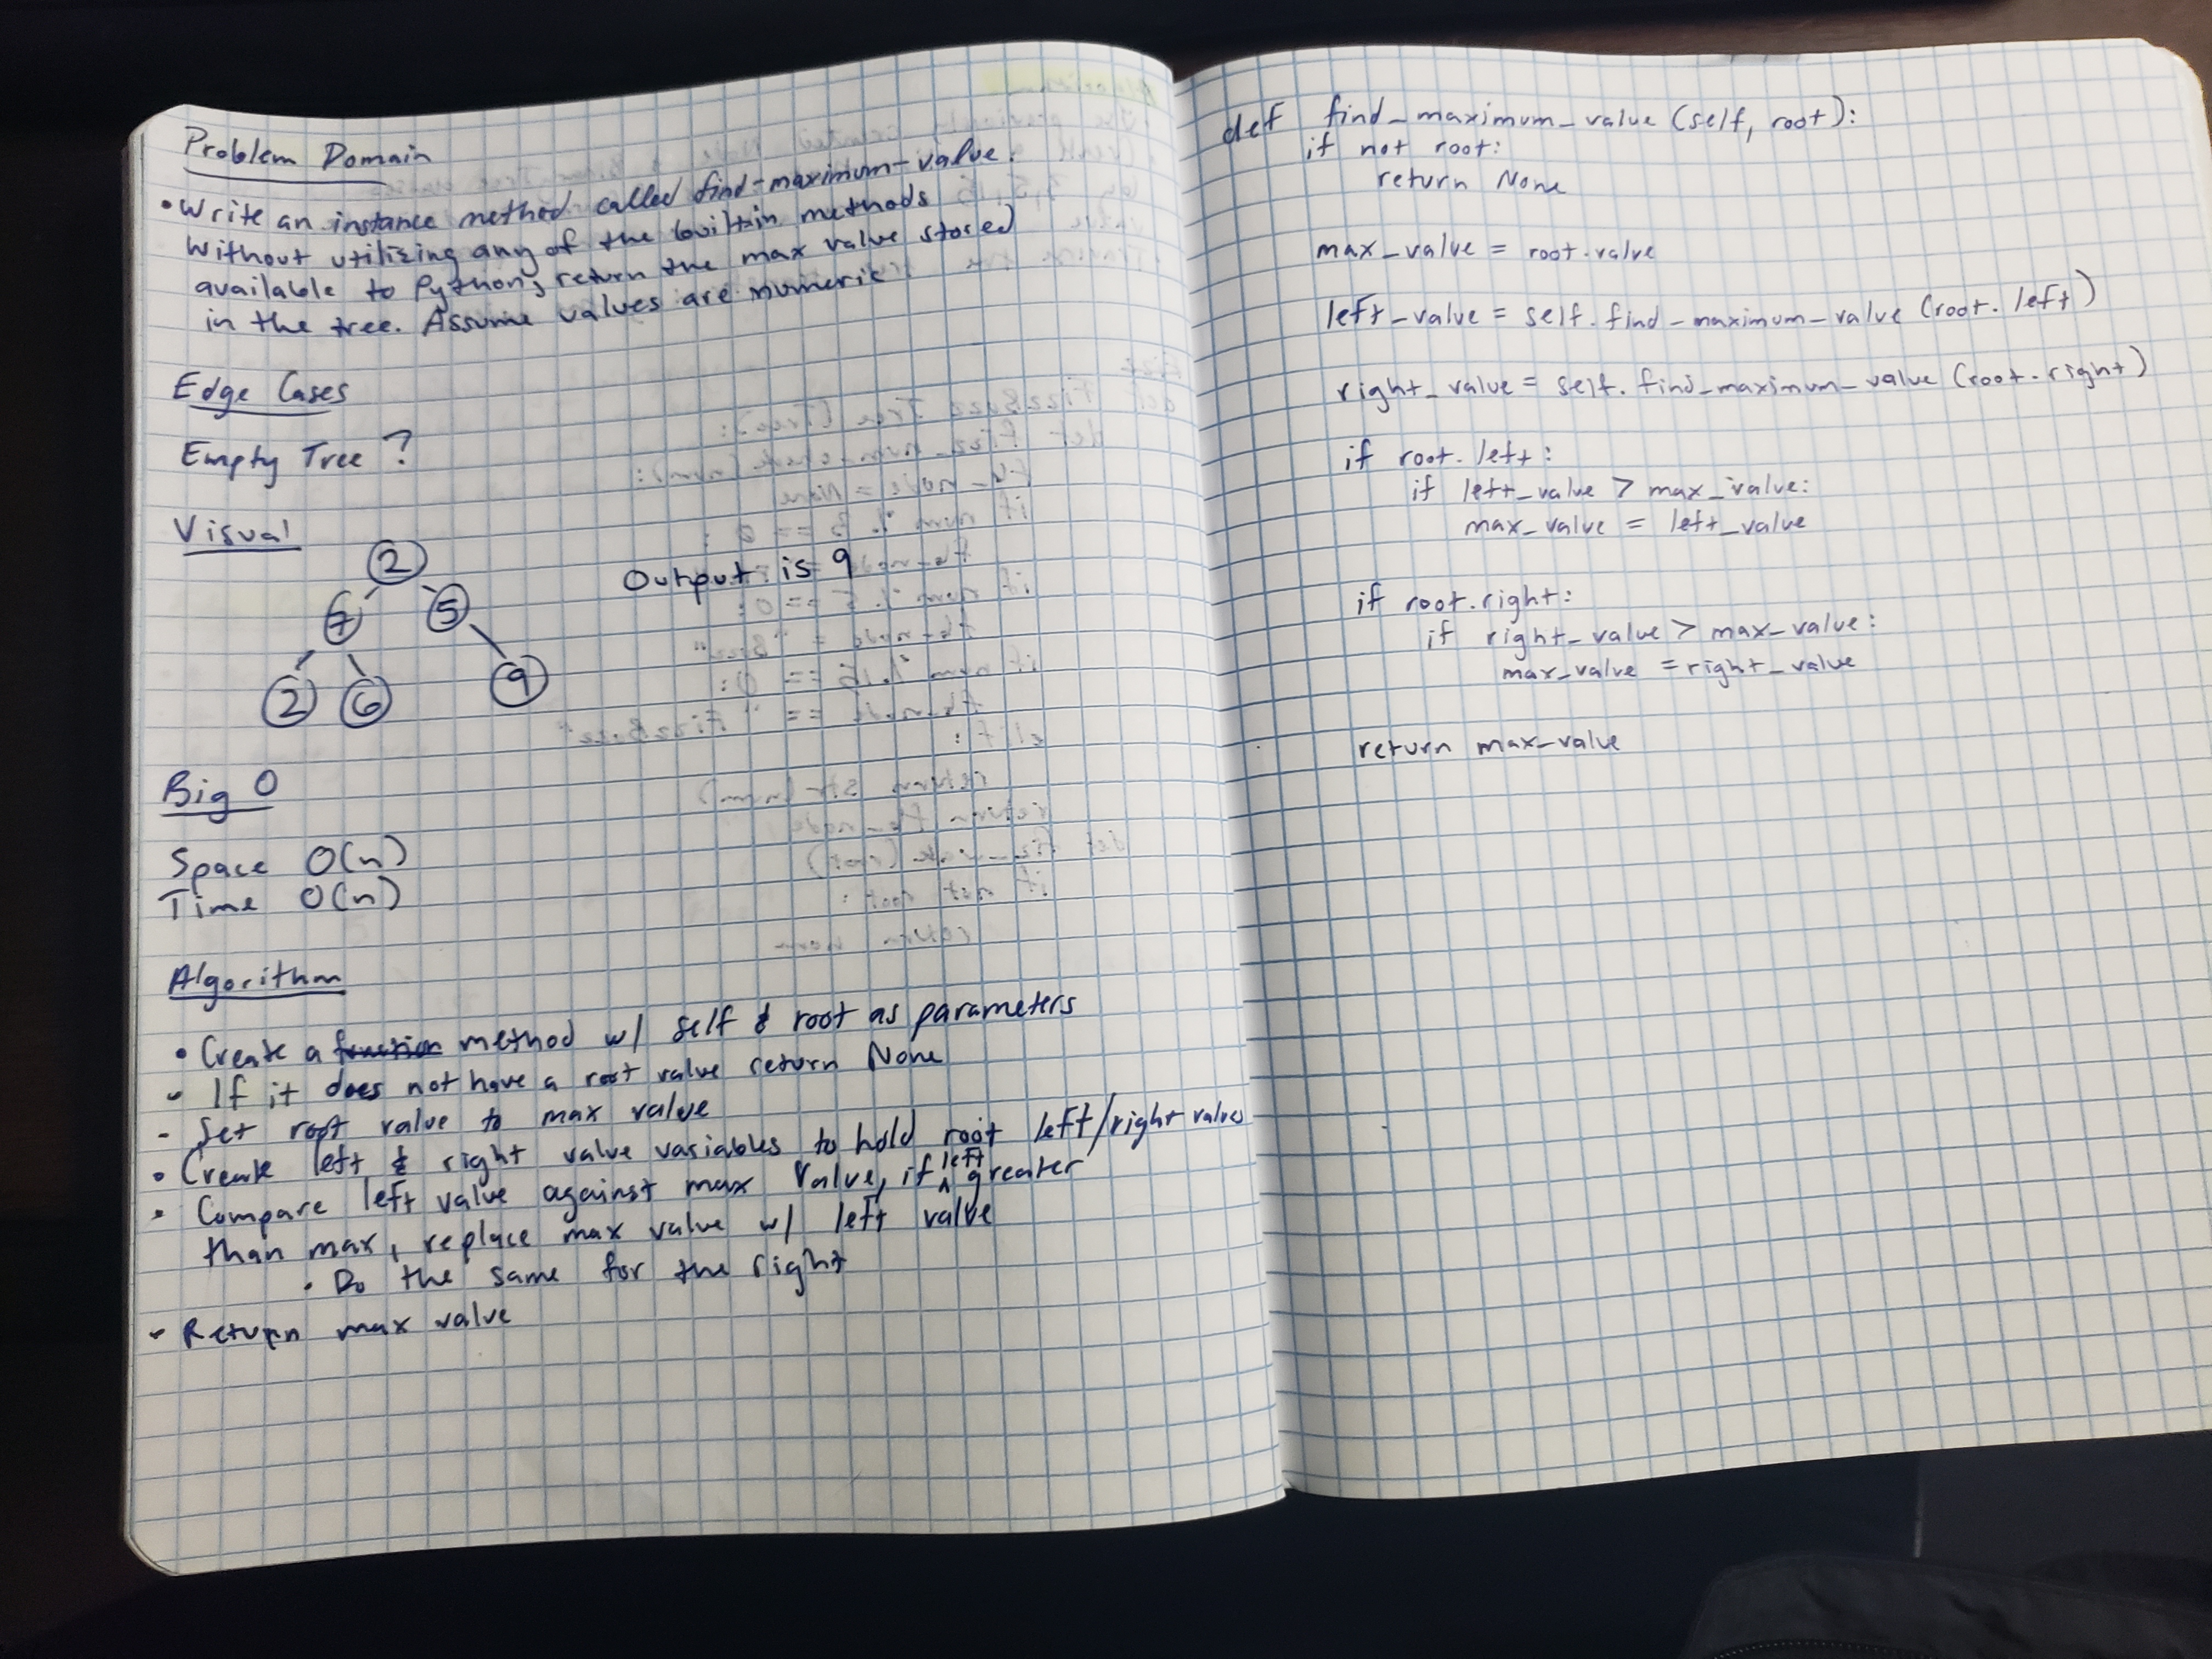 Problem Domain
• Write an instance method called find-maximum-value.
Without utilizing any of the built-in methods
available to Python, return the max value stored
in the tree. Assume values are numeric
Edge Cases
Empty Tree?
Visual
2
7 5
2 6 9
Output is = 9
Big O
Space O(n)
Time O(n)
Algorithm
• Create a function method w/ self & root as parameters
• If it does not have a root value return None
- Set root value to max value
• Create left & right value variables to hold root left/right value
• Compare left value against max value, if left greater
than max, replace max value w/ left value
• Do the same for the right
• Return max value
def find_maximum_value (self, root):
if not root:
return None
max_value = root.value
left_value = self.find_maximum_value (root.left)
right_value = self.find_maximum_value (root.right)
if root.left:
if left_value > max_value:
max_value = left_value
if root.right:
if right_value > max_value:
max_value = right_value
return max_value